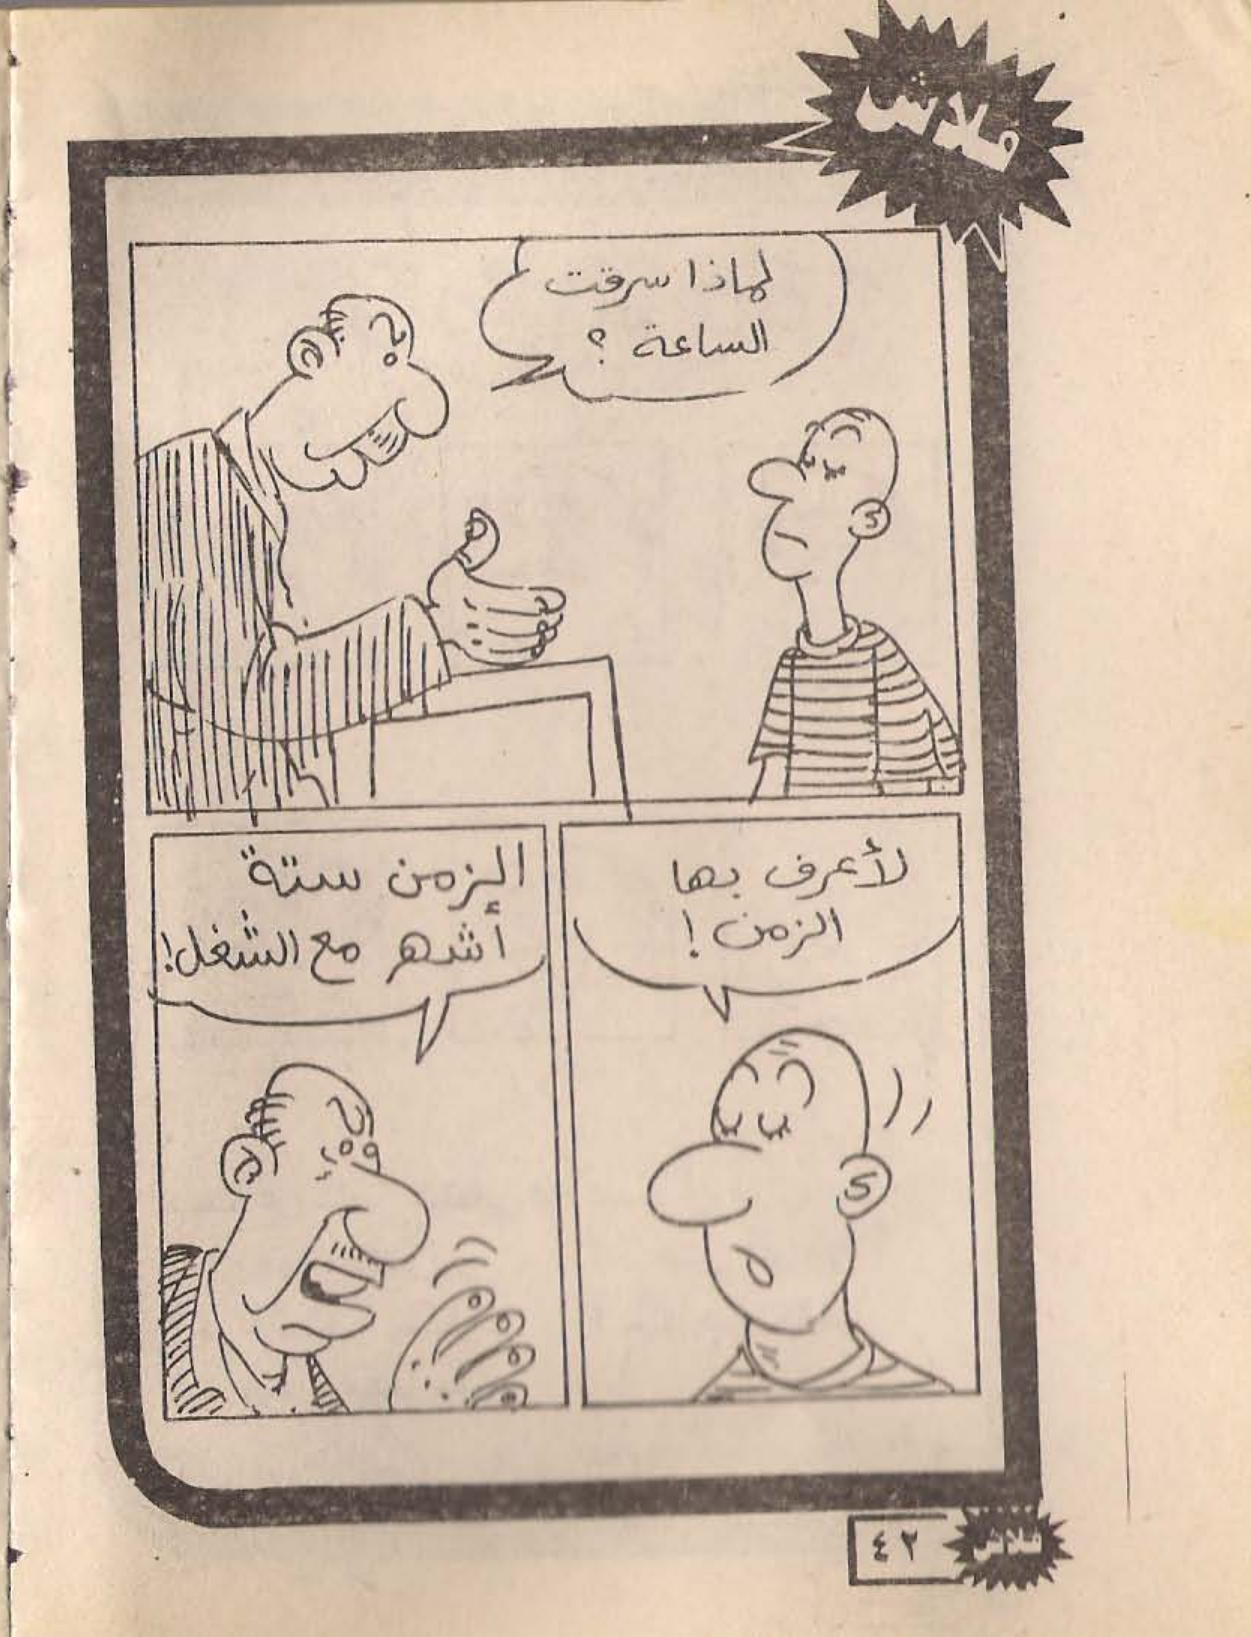 فلاش
لماذا سرقت
الساعة ؟
لأعرف بها
الزمن !
الزمن ستة
أشهر مع الشغل !
٤٢
فلاش